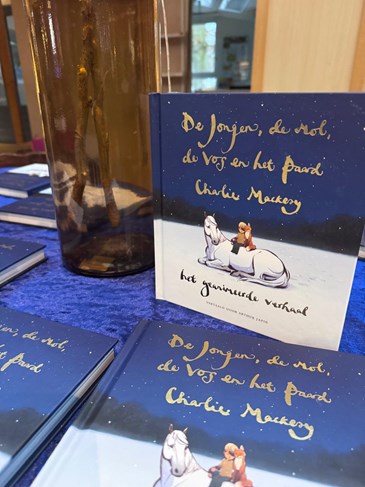 De Jongen, de mol,
de Vos en het Paard
Charlie Mackesy
het geanimeerde verhaal
VERTAALD DOOR ARTHUR JAPIN
De Jongen, de mol,
de Vos en het Paard
Charlie Mackesy
de mol,
het Paard